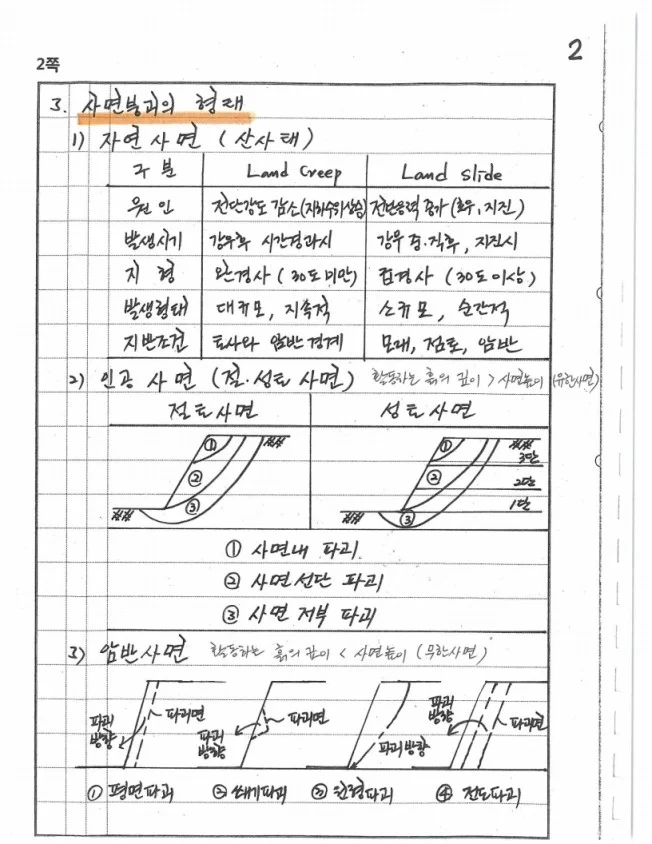 2
2쪽
3. 사면붕괴의 형태
1) 자연사면 (산사태)
구분 Land Creep Land slide
원인 전단강도 감소(지하수위상승) 전단응력 증가 (호우, 지진)
발생시기 강우후 시간경과시 강우 중·직후, 지진시
지형 완경사 (30도 미만) 급경사 (30도 이상)
발생형태 대규모, 지속적 소규모, 순간적
지반조건 토사와 암반 경계 모래, 점토, 암반
2) 인공 사면 (절·성토 사면) 활동하는 흙의 깊이 > 사면높이 (유한사면)
절토사면 성토사면
① ② ③
① ② ③ 3단 2단 1단
① 사면내 파괴
② 사면선단 파괴
③ 사면저부 파괴
3) 암반사면 활동하는 흙의 깊이 < 사면높이 (무한사면)
파괴방향 파괴면 파괴방향 파괴면 파괴방향 파괴방향 파괴면
① 평면파괴 ② 쐐기파괴 ③ 원형파괴 ④ 전도파괴